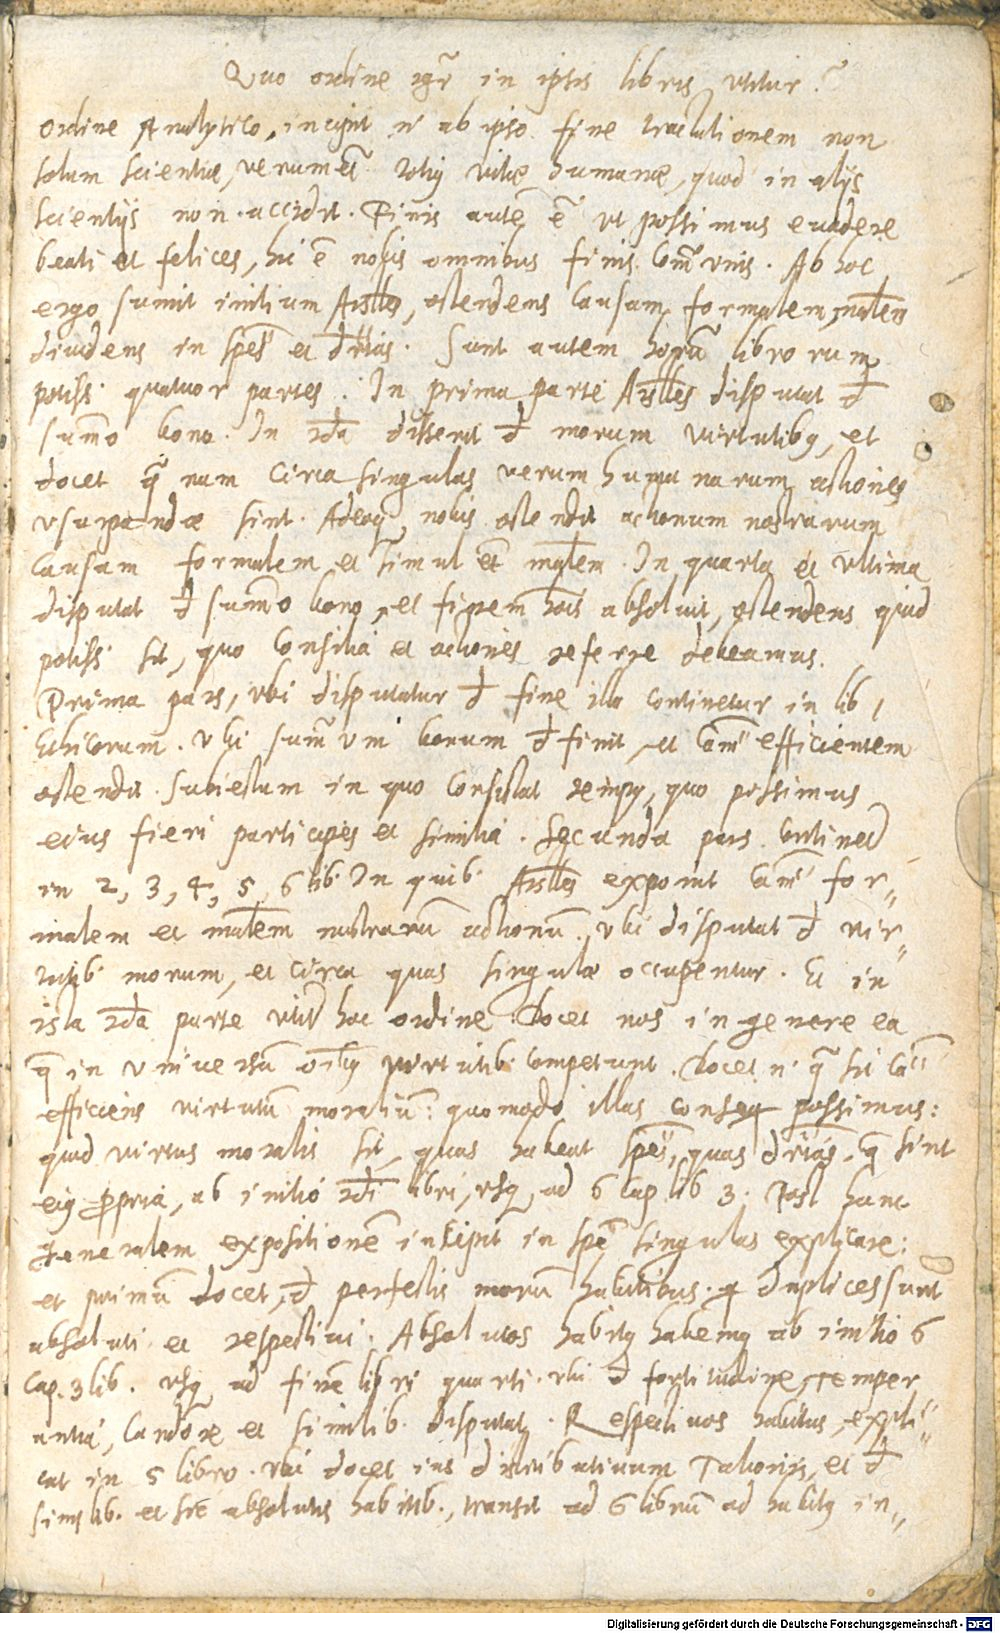 Quo ordine igr̃ in ipsis libris vtitur?
Ordine Analytico, incipit n' ab ipso fine tractationem non
solum scientiæ, verum et̃ totiꝰ vitæ humanæ, quod in alijs
scientijs non accidit. Finis autẽ ẽ vt possimus euadere
beati et felices, hic ẽ nobis omnibus finis com̃unis. Ab hoc
ergo sumit initium Arlles, ostendens causam formalem, mãlem
diuidens in spẽs et dr̃ias. Sunt autem horũ librorum
potiss. quatuor partes. In prima parte Arlles disputat đ
sum̃o bono. In 2da disserit đ morum virtutibꝰ, et
docet q̃ nam circa singulas rerum humanarum actiones
vsurpandæ sint. Adeoq nobis ostendit actionum nostrarum
causam formalem et simul et̃ mãlem. In quarta et vltima
disputat đ sum̃o bono, et finem hõis absoluit, ostendens quid
potiss. sit, quo consilia et actiones referre debeamus.
Prima pars, vbi disputatur đ fine illo continetur in lib 1
Ethicorum. vbi sum̃um bonum đfinit, et cam̃ efficientem
ostendit. subiectum in quo consistat, quo possimus
eius fieri participes et similia. Secunda pars continet̃
in 2, 3, 4, 5, 6 lib. In quib. Arlles exponit cam̃ for-
malem et mãlem nostrarũ actionũ. vbi disputat đ vir-
tutib. morum, et circa quas singulæ occupentur. Et in
ista 2da parte vtit̃ hoc ordine. Docet nos in genere ea
q̃ in vniuersũ õibꝰ virtutib. competunt. Docet n' q̃ sit cã
efficiens virtutũ moraliũ: quomodo illas conseq possimus:
quid virtus moralis sit, quas habeat spẽs, quas dr̃ias, q̃ sint
eiꝰ ꝓpria, ab initio 2di libri, vsq ad 6 cap lib 3. Post hanc
generalem expositionẽ incipit in spẽ singulas explicare:
et primũ docet, đ perfectis morũ habitibus. q duplices sunt
absoluti et respectiui. Absolutos habitꝰ habemꝰ ab initio 6
cap. 3 lib. vsq ad finẽ libri quarti. vbi đ fortitudine, temper-
antia, candore et similib. disputat. Respectiuos habitus, expli-
cat in 5 libro. vbi docet ius distributiuum Talionis, et đ
similib. et sic absolutis habitib., transit ad 6 librũ ad habitꝰ in-
Digitalisierung gefördert durch die Deutsche Forschungsgemeinschaft - DFG